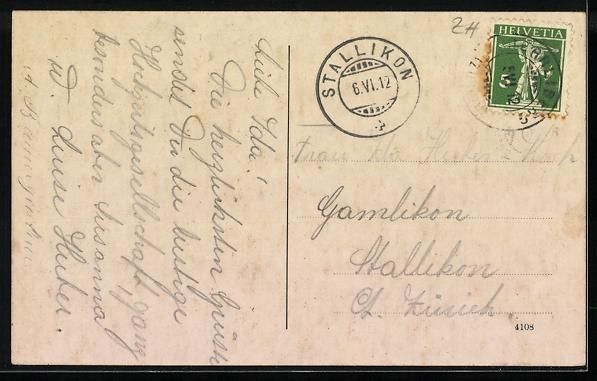 Liebe Ida!
Die herzlichsten Grüsse
sendet Dir die lustige
Hochzeitsgesellschaft ganz
besonders aber Susanna
W. Luise Huber.
ZH
HELVETIA
5
STALLIKON
6.VI.12
Frau Ida Huber
Gamlikon
Stallikon
Ct. Zürich.
4108